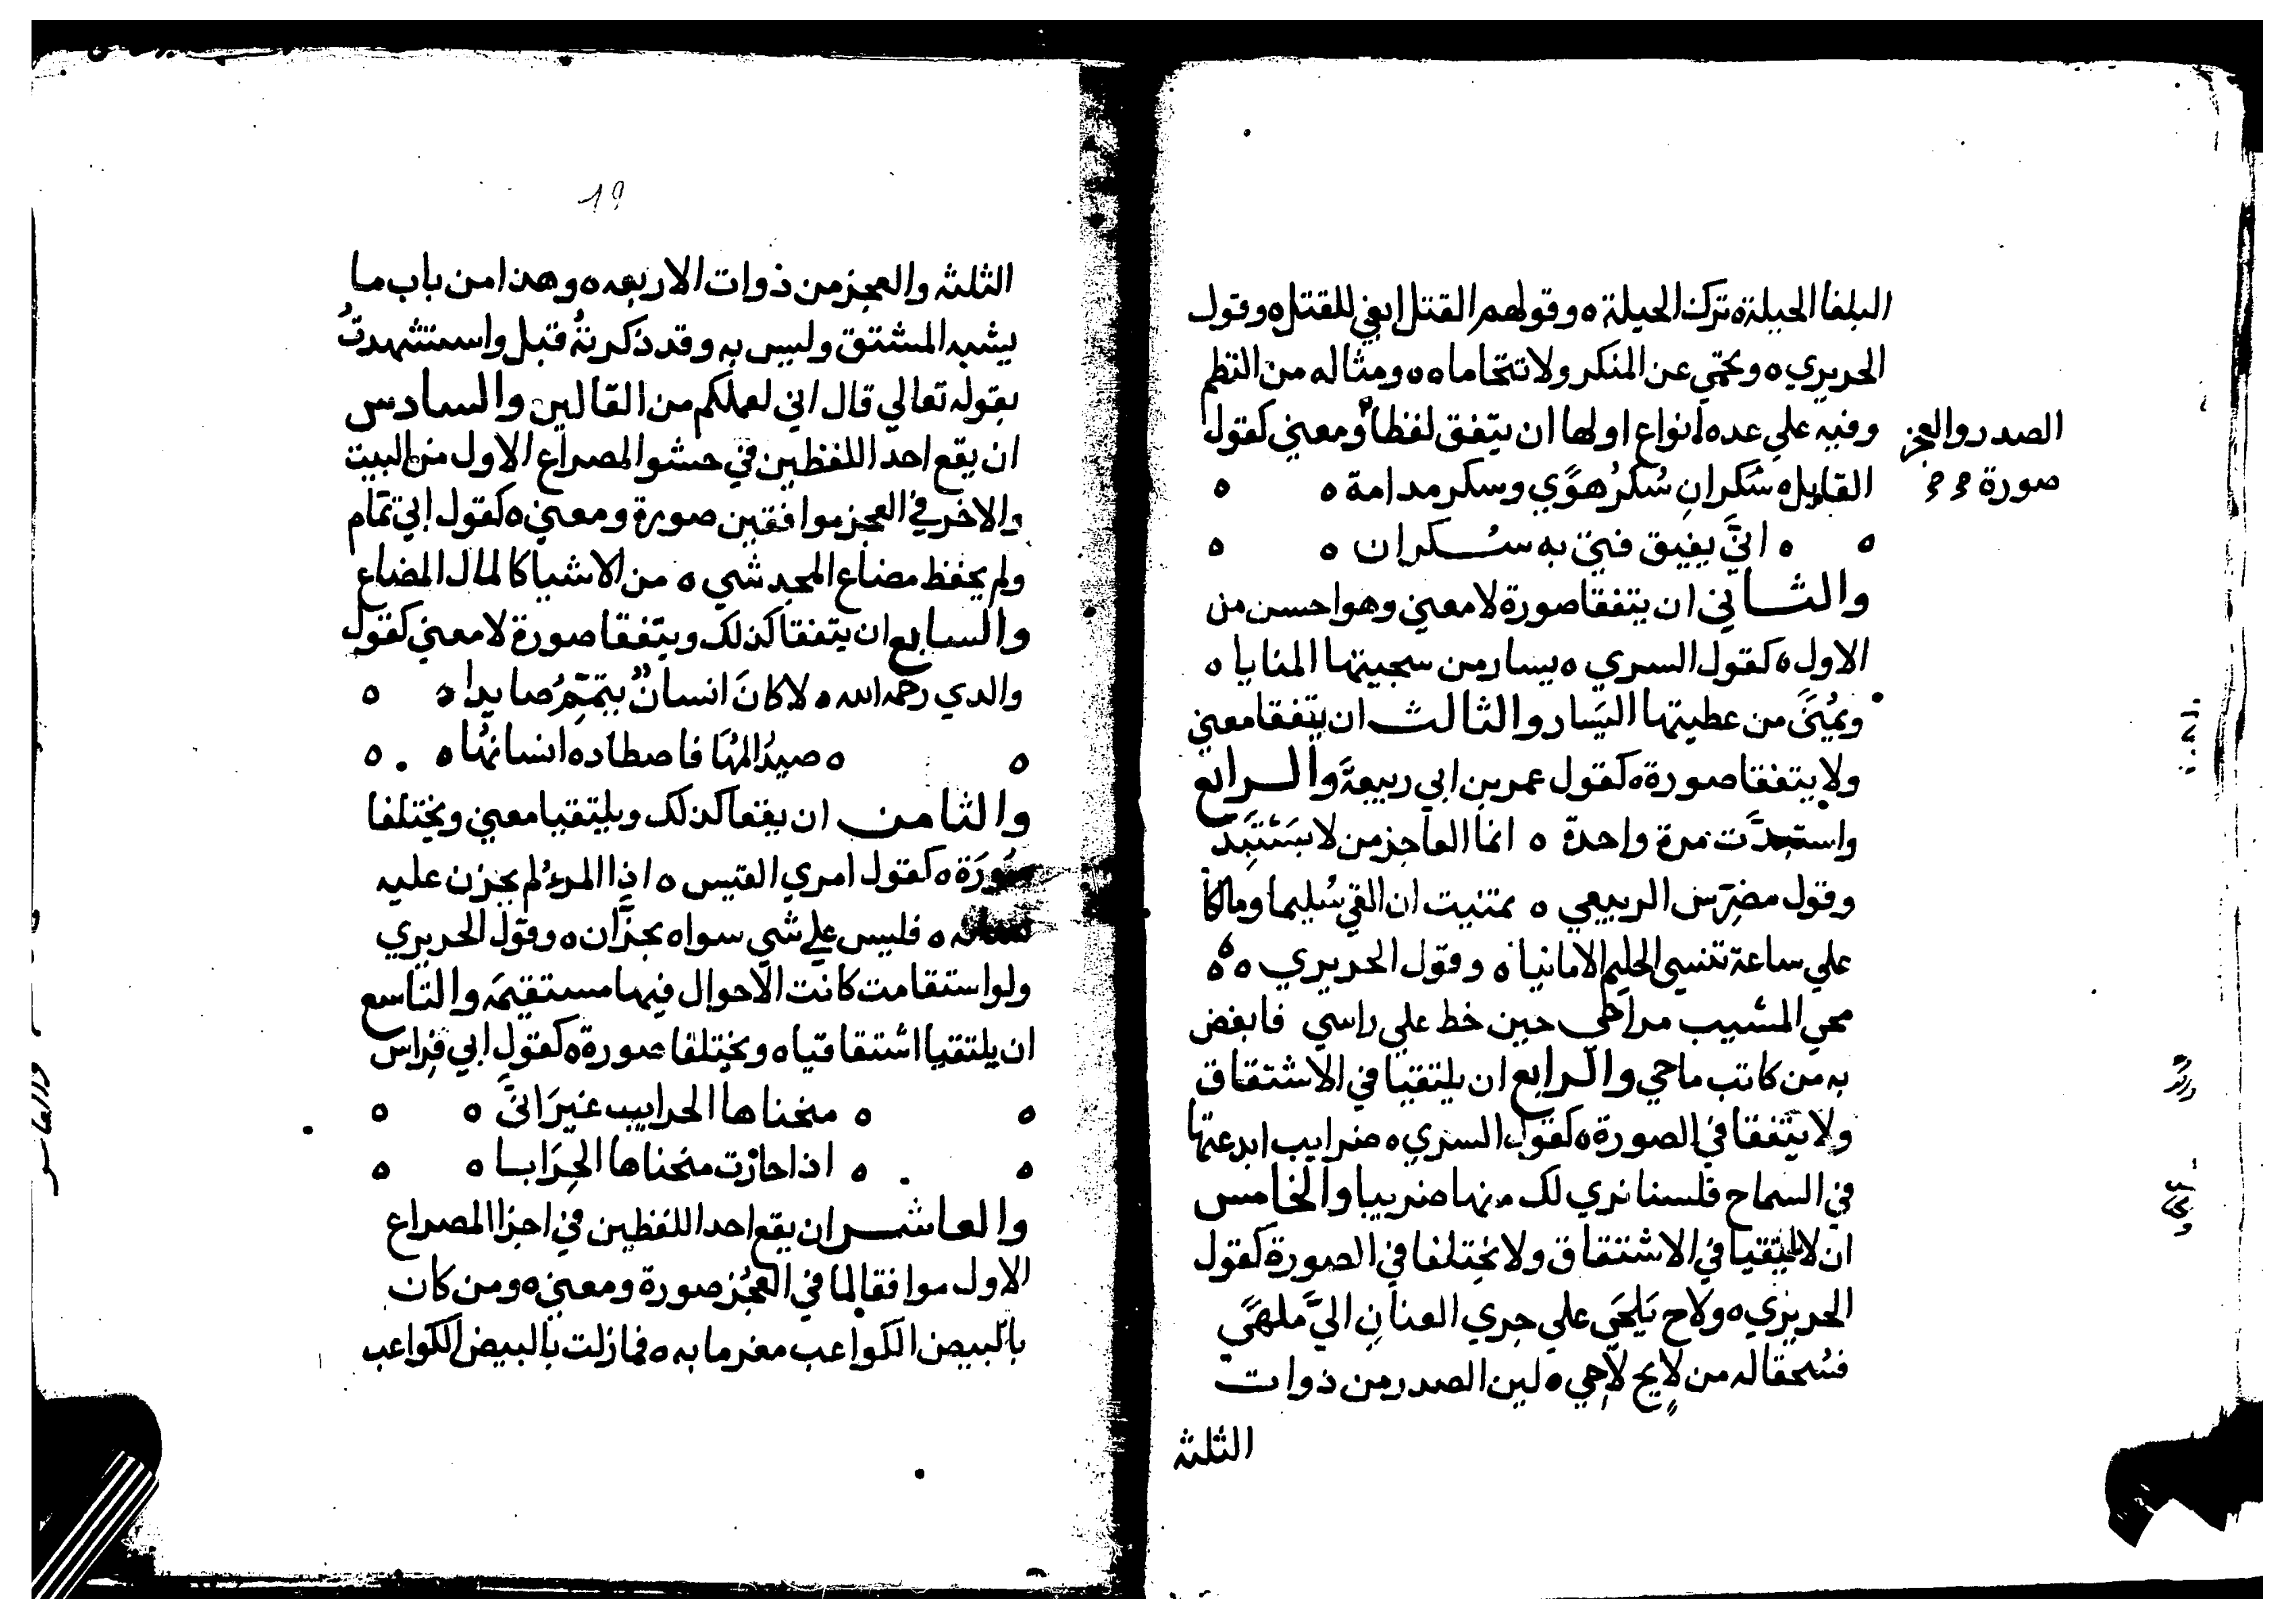 البلغا الحيلة ترك الحيلة ه وقولهم القتل انفي للقتل ه وقول
الحريري ه ويحمي عن المنكر ولا تتحاماه ه ه ومثاله من النظم
وفيه علي عده انواع اولها ان يتفق لفظا ومعني كقول
الصدر والعجز
صورة
القايل ه سكران سُكرُ هوًي وسكر مدامة ه ه
ه ه انيَّ يفيق فتي به سكران ه ه
والثاني ان يتفقا صورة لا معني وهو احسن من
الاول ه كقول السري ه يسار من سجيتها المنايا ه
ويُمنَي من عطيتها اليَسار والثالث ان يتفقا معني
ولا يتفقا صورة ه كقول عمر بن ابي ربيعةَ والرابع
واستبدَّت مرة واحدة ه انما العاجز من لا يَسْتَبِدّ
وقول مضرّس الربيعي ه تمنيت ان القي سُليما ومالكا
علي ساعة تنسي الحليم الامانيا ه وقول الحريري ه ه
محي المشيب مراحي حين خط علي راسي فابغض
به من كاتب ماحي والرابع ان يلتقيا في الاشتقاق
ولا يتفقا في الصورة ه كقول السري ه ضرايب ابدعتها
في السماح فلسنا نري لك منها ضريبا والخامس
ان لا يلتقيا في الاشتقاق ولا يختلفا في الصورة كقول
الحريري ه ولاح يَلحَي علي جري العنانِ اليَّ ملهًي
فسُحقا له من لايحٍ لاحي ه لين الصدر من ذوات
الثلثه
19
الثلثه والعجز من ذوات الاربعه ه وهذا من باب ما
يشبه المشتق وليس به وقد ذكرتهُ قبل واستشهدتُ
بقوله تعالي قال اني لعملكم من القالين والسادس
ان يقع احد اللفظين في حشو المصراع الاول من البيت
والاخر في العجز موافقين صورة ومعني ه كقول ابي تمّام
ولم يحفظ مضاع المجد شي ه من الاشيا كالمال المضاع
والسابع ان يتفقا كذلك ويتفقا صورة لا معني كقول
والدي رحمه الله ه لا كانَ انسانٌ يتمّم صايدا ه ه
ه ه صيدُ المَهَا فاصطاده انسانُها ه ه
والثامن ان يقعا كذلك ويلتقيا معني ويختلفا
صورَة ه كقول امري القيس ه اذا المرءُ لم يخزن عليه
لسانه ه فليس علي شي سواه بخزَّان ه وقول الحريري
ولو استقامت كانت الاحوال فيها مستقيمَه والتاسع
ان يلتقيا اشتقاقيا ه ويختلفا صورة ه كقول ابي فراس
ه ه منحناها الحرايب غيرَ انَّ ه ه
ه ه اذا جازت منحناها الحِرَابا ه ه
والعاشر ان يقع احد اللفظين في اخر المصراع
الاول موافقا لما في العجُز صورة ومعني ه ومن كان
بالبيض الكواعب مغرما به ه فما زلت بالبيض الكواعب